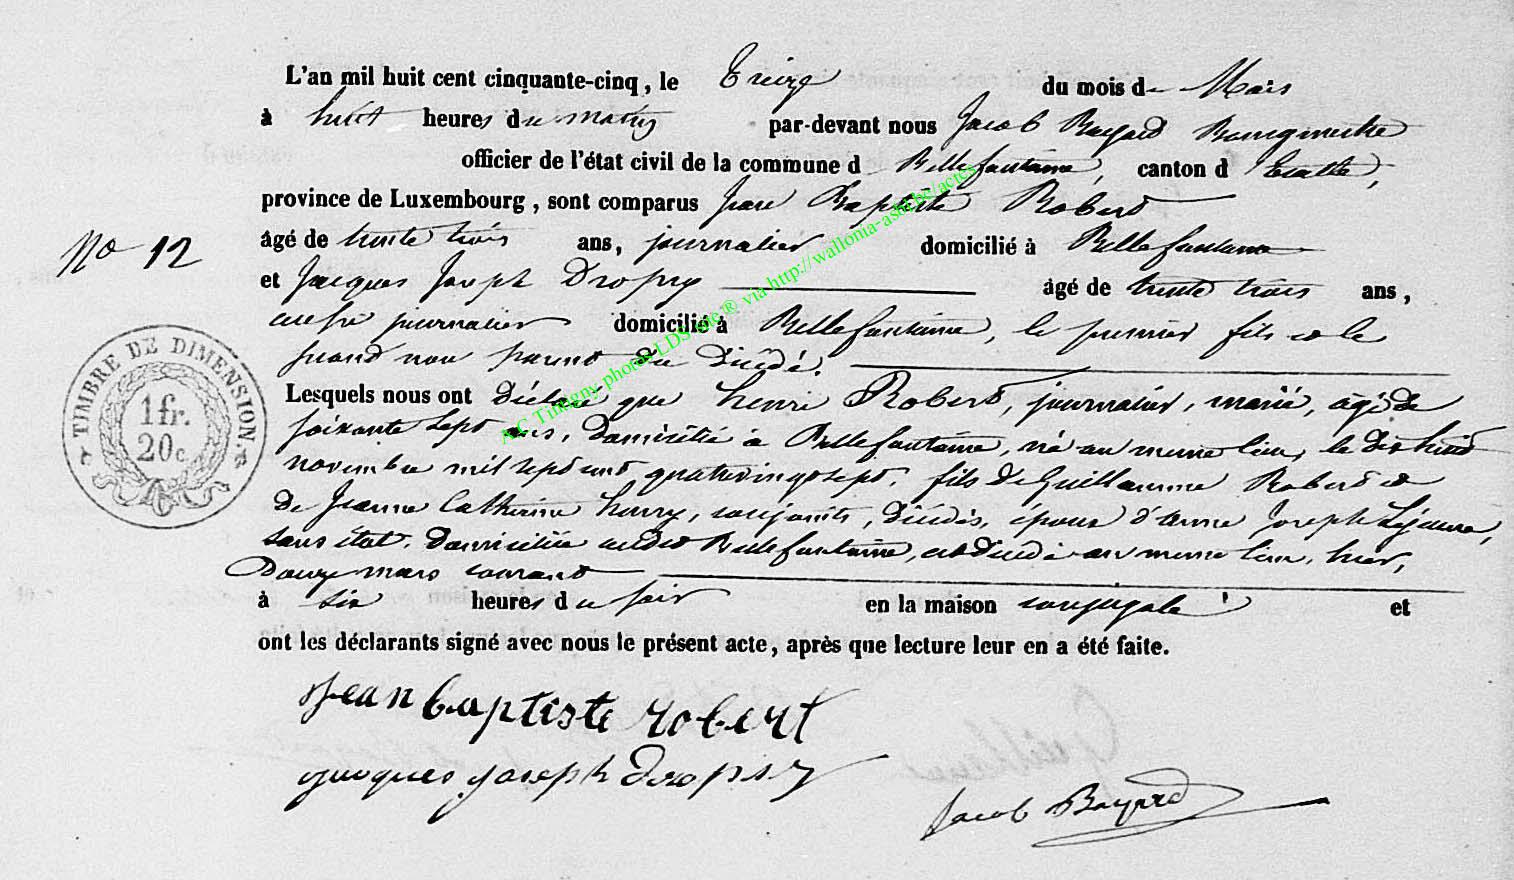 L'an mil huit cent cinquante-cinq, le Treize du mois de Mars
à huit heures du matin par-devant nous Jacob Bayard Bourgmestre
officier de l'état civil de la commune d Bellefontaine, canton d Etalle,
province de Luxembourg, sont comparus Jean Baptiste Robert
No 12
âgé de trente trois ans, journalier domicilié à Bellefontaine
et Jacques Joseph Dropsy âgé de trente trois ans,
aussi journalier domicilié à Bellefontaine, le premier fils et le
second non parent du Décédé.
Lesquels nous ont Déclaré que henri Robert, journalier, marié, âgé de
soixante sept ans, Domicilié à Bellefontaine, né au meme lieu, le dix huit
novembre mil sept cent quatrevingt sept, fils de Guillaume Robert et
de Jeanne Catherine henry, conjoints, Décédés, époux d'anne Joseph Lejeune,
sans état, Domiciliée audit Bellefontaine, est Décédé au meme lieu, hier,
Douze mars courant
à six heures du soir en la maison conjugale et
ont les déclarants signé avec nous le présent acte, après que lecture leur en a été faite.
TIMBRE DE DIMENSION
1 fr.
20 c.
jean baptiste robert
jacques joseph dropsy
Jacob Bayard
AC Tintigny photos LDS site ® via http://wallonia-asbl.be/actes